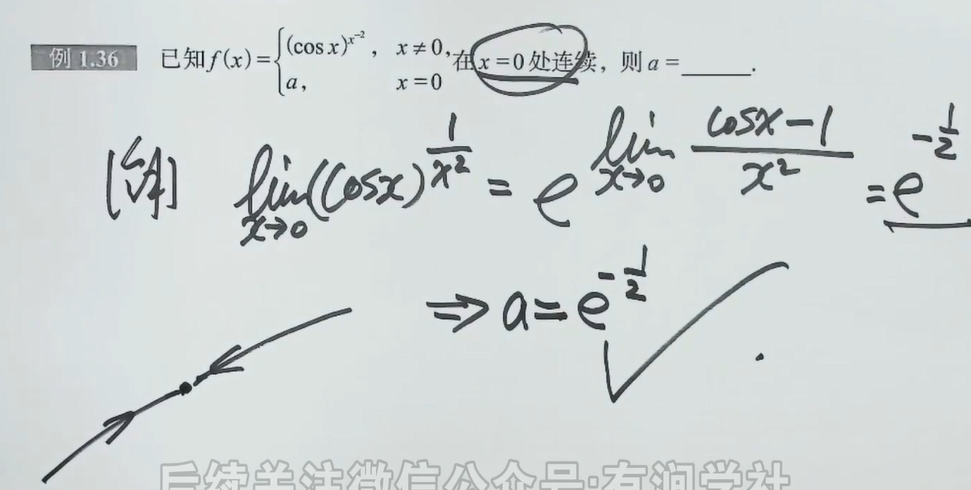 例 1.36 已知 f(x)={(cos x)^{x^{-2}}, x≠0, a, x=0 在 x=0 处连续，则 a=______.
[解] lim_{x→0} (cosx)^{1/x²} = e^{lim_{x→0} (cosx-1)/x²} = e^{-1/2}
⇒ a = e^{-1/2}
后续关注微信公众号:有润学社